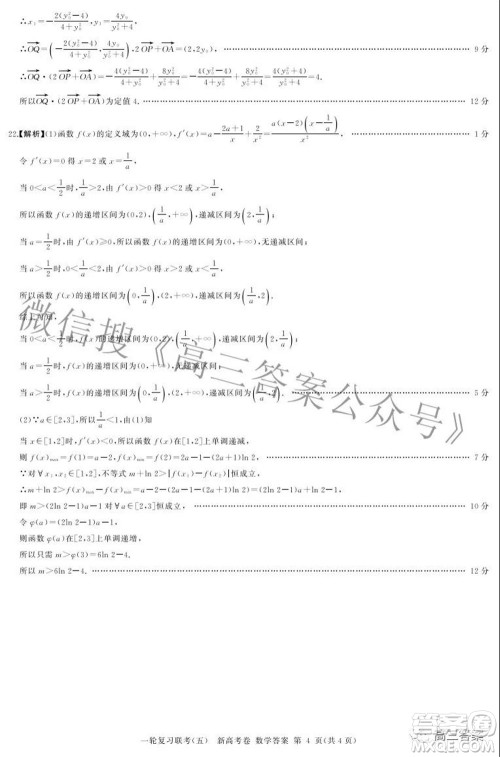 ∴x₂=-2(y₀²-4)/(4+y₀²), y₂=4y₀/(4+y₀²).
∴OQ=(-2(y₀²-4)/(4+y₀²), 4y₀/(4+y₀²)), 2OP+OA=(2,2y₀), 9分
∴OQ·(2OP+OA)=-4(y₀²-4)/(4+y₀²)+8y₀²/(4+y₀²)=-4(y₀²-4)/(4+y₀²)+8y₀²/(4+y₀²)=4.
所以OQ·(2OP+OA)为定值4. 12分
22.【解析】(1)函数f(x)的定义域为(0,+∞),f′(x)=a-(2a+1)/x+2/x²=a(x-2)(x-1/a)/x². 1分
令f′(x)=0得x=2或x=1/a.
当0<a<1/2时,由f′(x)>0得x<2或x>1/a,
所以函数f(x)的递增区间为(0,2),(1/a,+∞),递减区间为(2,1/a);
当a=1/2时,由f′(x)≥0,所以函数f(x)的递增区间为(0,+∞),无递减区间;
当a>1/2时,由f′(x)>0得x>2或x<1/a,
所以函数f(x)的递增区间为(0,1/a),(2,+∞),递减区间为(1/a,2).
综上可知,
当0<a<1/2时,函数f(x)的递增区间为(0,2),(1/a,+∞),递减区间为(2,1/a);
当a=1/2时,函数f(x)的递增区间为(0,+∞),无递减区间;
当a>1/2时,函数f(x)的递增区间为(0,1/a),(2,+∞),递减区间为(1/a,2). 5分
(2)∵a∈[2,3],所以1/a<1,由(1)知
当x∈[1,2]时,f′(x)<0,所以函数f(x)在[1,2]上单调递减,
则f(x)max=f(1)=a-2,f(x)min=f(2)=2a-1-(2a+1)ln 2, 7分
∵对∀x₁,x₂∈[1,2],不等式m+ln 2>|f(x₁)-f(x₂)|恒成立,
∴m+ln 2>f(x)max-f(x)min=a-2-(2a-1-(2a+1)ln 2),
即m>(2ln 2-1)a-1对∀a∈[2,3]恒成立, 10分
令φ(a)=(2ln 2-1)a-1,
则函数φ(a)在[2,3]上单调递增,
所以只需m>φ(3)=6ln 2-4.
所以m>6ln 2-4. 12分
微信搜《高三答案公众号》
一轮复习联考(五) 新高考卷 数学答案 第 4 页(共 4 页)
高三答案